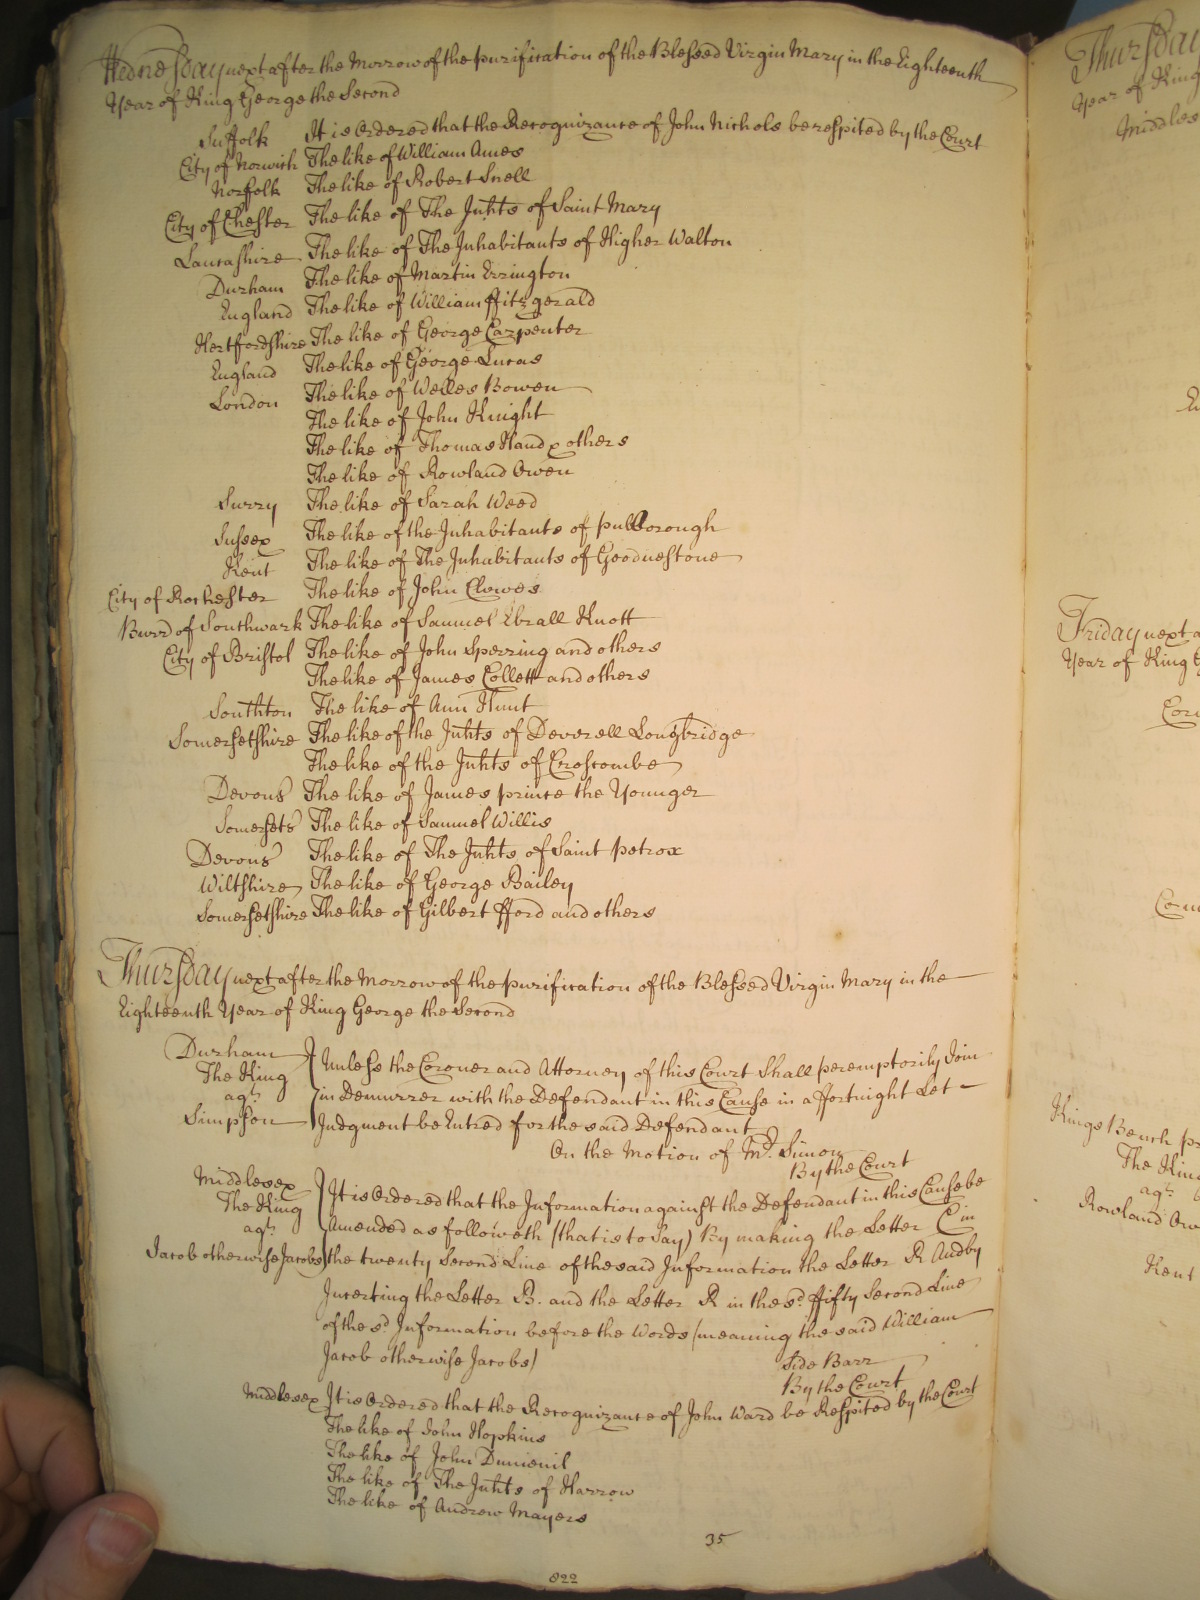 Wednesday next after the Morrow of the purification of the Blessed Virgin Mary in the Eighteenth
Year of King George the Second
Suffolk It is Ordered that the Recognizance of John Nichols be respited by the Court
City of Norwich The like of William Ames
Norfolk The like of Robert Snell
City of Chester The like of The Inhts of Saint Mary
Lancashire The like of The Inhabitants of Higher Walton
Durham The like of Martin Errington
England The like of William ffitzgerald
Hertfordshire The like of George Carpenter
England The like of George Lucas
London The like of Welles Bowen
The like of John Knight
The like of Thomas Hand & others
The like of Rowland Owen
Surry The like of Sarah Weed
Sussex The like of the Inhabitants of pulborough
Kent The like of The Inhabitants of Goodnestone
City of Rochester The like of John Clowes
Burrō of Southwark The like of Samuel Ebrall Knott
City of Bristol The like of John Sperring and others
The like of James Collett and others
Southton The like of Ann Hunt
Somersetshire The like of the Inhts of Deverell Longbridge
The like of the Inhts of Croscombe
Devons The like of James prince the Younger
Somersets The like of Samuel Willis
Devons The like of The Inhts of Saint petrox
Wiltshire The like of George Bailey
Somersetshire The like of Gilbert fford and others
Thursday next after the Morrow of the purification of the Blessed Virgin Mary in the
Eighteenth Year of King George the Second
Durham
The King
agt
Simpson
Unless the Coroner and Attorney of this Court Shall peremptorily Join
in Demurrer with the Defendant in this Cause in a ffortnight Let
Judgment be Entred for the said Defendant
On the Motion of Mr. Simon
By the Court
Middlesex
The King
agt
Jacob otherwise Jacobs
It is Ordered that the Information against the Defendant in this Cause be
Amended as followeth (that is to Say) By making the Letter C in
the twenty Second Line of the said Information the Letter R And by
Inserting the Letter B. and the Letter R in the sd. ffifty Second Line
of the sd Information before the Words (meaning the said William
Jacob otherwise Jacobs)
Side Barr
By the Court
Middlesex It is Ordered that the Recognizance of John Ward be Respited by the Court
The like of John Hopkins
The like of John Dumenil
The like of The Inhts of Harrow
The like of Andrew Mayers
35
822
Thursday
Year of King
Middles
Friday next a
Year of King G
Kings Bench pr
The King
agt
Rowland Ow
Kent